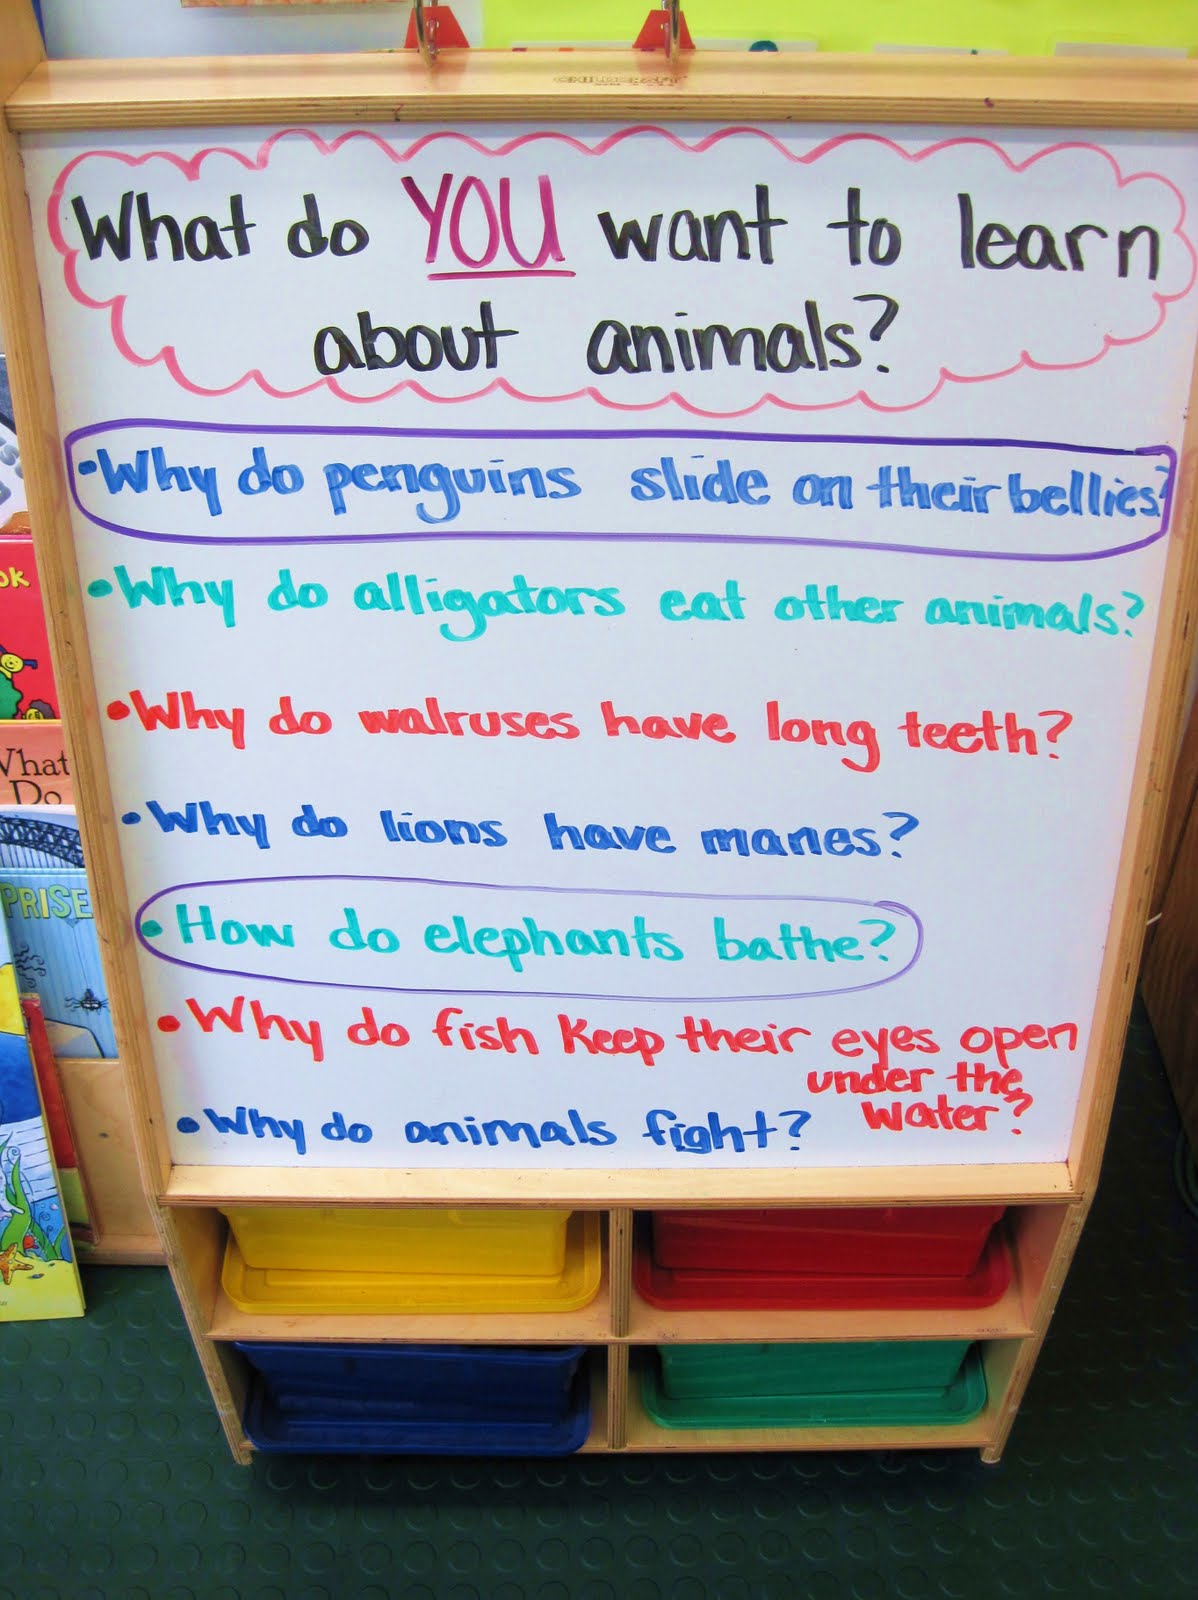 What do YOU want to learn
about animals?
• Why do penguins slide on their bellies?
• Why do alligators eat other animals?
• Why do walruses have long teeth?
• Why do lions have manes?
• How do elephants bathe?
• Why do fish keep their eyes open
under the
water?
• Why do animals fight?
What
Do
PRISE